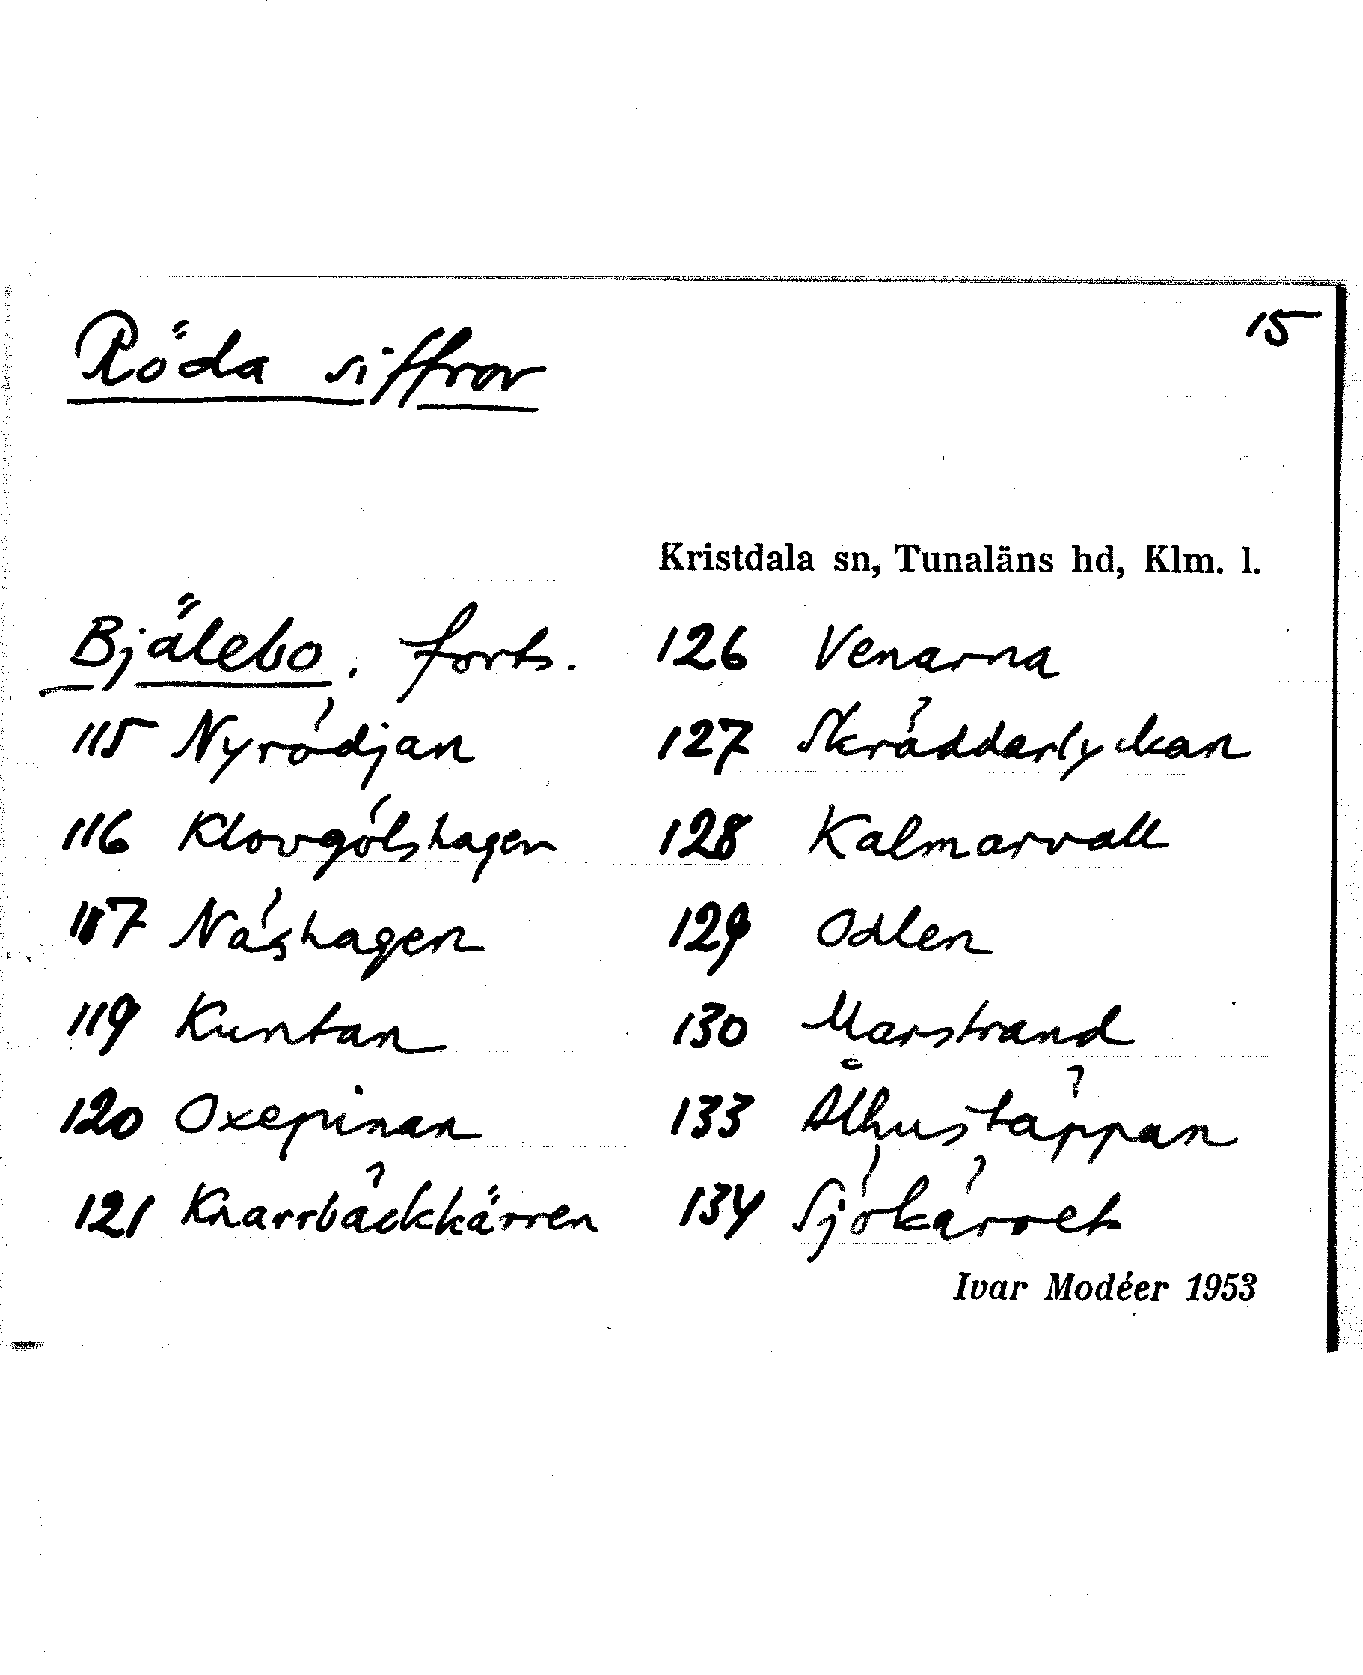 15
Röda siffror
Kristdala sn, Tunaläns hd, Klm. l.
Bjälebo. forts.
115 Nyrödjan
116 Klovgölshagen
117 Näshagen
119 Kuntan
120 Oxepinan
121 Knarrbäckkärren
126 Venarna
127 Skräddarlyckan
128 Kalmarvall
129 Odlen
130 Marstrand
133 Ålhustäppan
134 Sjökärret
Ivar Modéer 1953